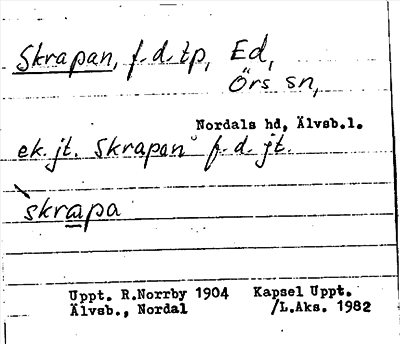 Skrapan, f.d. tp, Ed,
Örs sn,
Nordals hd, Älvsb.l.
ek. jt. Skrapan f.d. jt.
`skrapa
Uppt. R.Norrby 1904 Kapsel Uppt.
Älvsb., Nordal /L.Aks. 1982